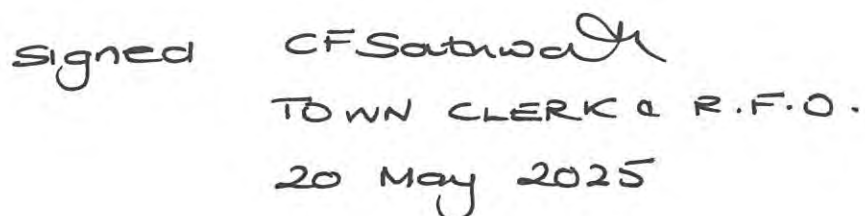 signed CFSatHwa
TOWN CLERK & R.F.O.
20 May 2025